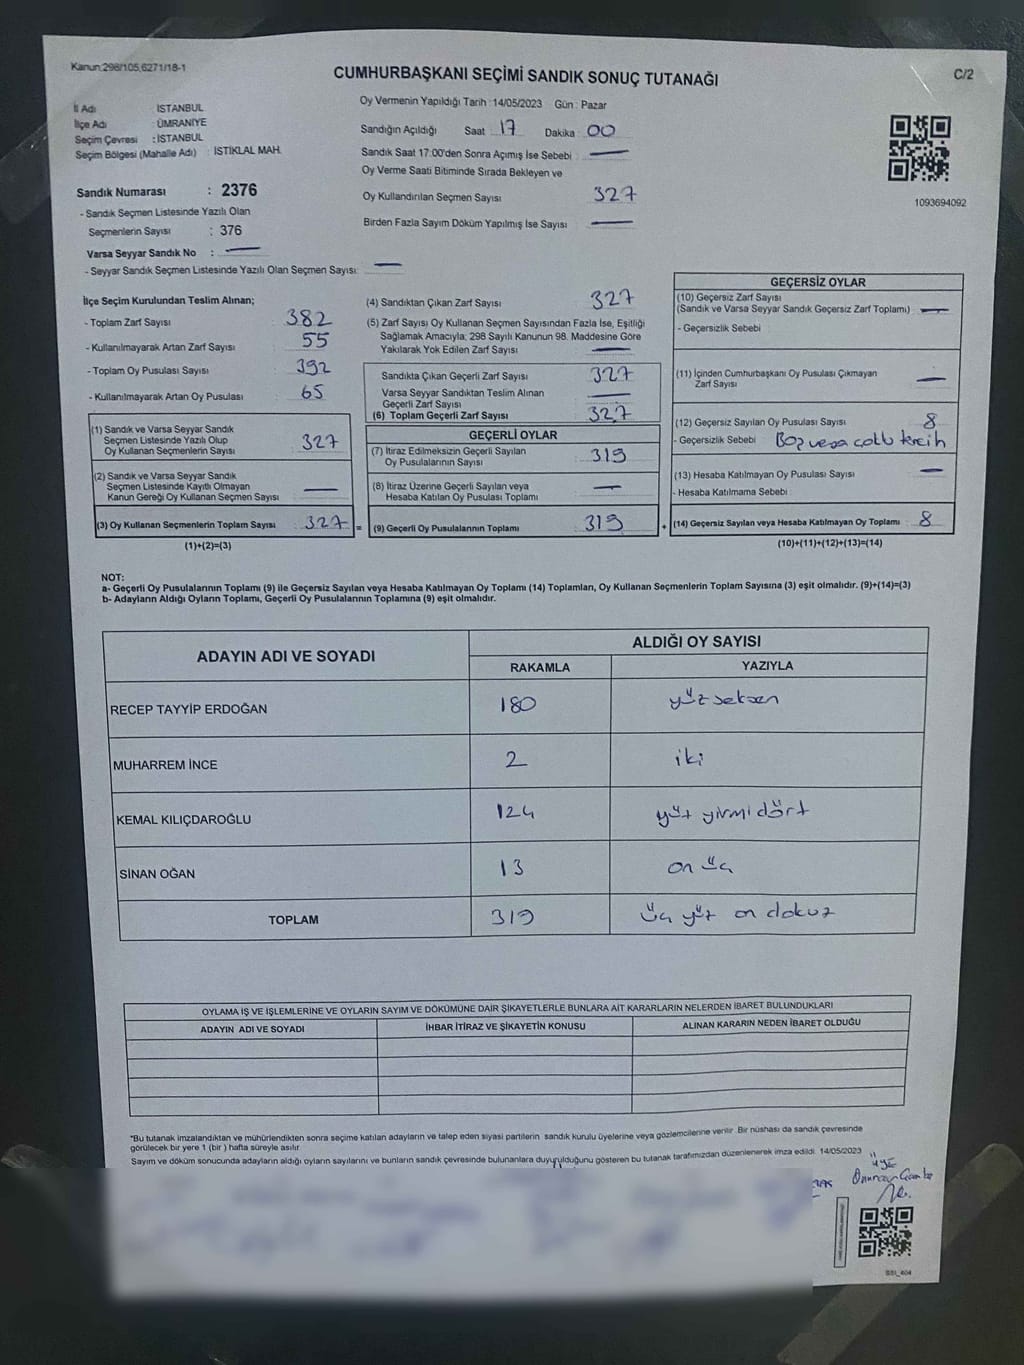 Kanun:298/105,6271/18-1
C/2
CUMHURBAŞKANI SEÇİMİ SANDIK SONUÇ TUTANAĞI
İl Adı : İSTANBUL
İlçe Adı : ÜMRANİYE
Seçim Çevresi : İSTANBUL
Seçim Bölgesi (Mahalle Adı) : İSTİKLAL MAH.
Oy Vermenin Yapıldığı Tarih : 14/05/2023 Gün : Pazar
Sandığın Açıldığı Saat 17 Dakika 00
Sandık Saat 17:00'den Sonra Açımış İse Sebebi : —
Oy Verme Saati Bitiminde Sırada Bekleyen ve
Oy Kullandırılan Seçmen Sayısı 327
Birden Fazla Sayım Döküm Yapılmış İse Sayısı —
1093694092
Sandık Numarası : 2376
- Sandık Seçmen Listesinde Yazılı Olan
Seçmenlerin Sayısı : 376
Varsa Seyyar Sandık No : —
- Seyyar Sandık Seçmen Listesinde Yazılı Olan Seçmen Sayısı: —
İlçe Seçim Kurulundan Teslim Alınan;
- Toplam Zarf Sayısı : 382
- Kullanılmayarak Artan Zarf Sayısı : 55
- Toplam Oy Pusulası Sayısı : 392
- Kullanılmayarak Artan Oy Pusulası : 65
(1) Sandık ve Varsa Seyyar Sandık
Seçmen Listesinde Yazılı Olup
Oy Kullanan Seçmenlerin Sayısı : 327
(2) Sandık ve Varsa Seyyar Sandık
Seçmen Listesinde Kayıtlı Olmayan
Kanun Gereği Oy Kullanan Seçmen Sayısı : —
(3) Oy Kullanan Seçmenlerin Toplam Sayısı : 327 =
(1)+(2)=(3)
(4) Sandıktan Çıkan Zarf Sayısı 327
(5) Zarf Sayısı Oy Kullanan Seçmen Sayısından Fazla İse, Eşitliği
Sağlamak Amacıyla; 298 Sayılı Kanunun 98. Maddesine Göre
Yakılarak Yok Edilen Zarf Sayısı —
Sandıkta Çıkan Geçerli Zarf Sayısı 327
Varsa Seyyar Sandıktan Teslim Alınan
Geçerli Zarf Sayısı —
(6) Toplam Geçerli Zarf Sayısı 327
GEÇERLİ OYLAR
(7) İtiraz Edilmeksizin Geçerli Sayılan
Oy Pusulalarının Sayısı 319
(8) İtiraz Üzerine Geçerli Sayılan veya
Hesaba Katılan Oy Pusulası Toplamı —
(9) Geçerli Oy Pusulalarının Toplamı 319 +
GEÇERSİZ OYLAR
(10) Geçersiz Zarf Sayısı
(Sandık ve Varsa Seyyar Sandık Geçersiz Zarf Toplamı) : —
- Geçersizlik Sebebi
(11) İçinden Cumhurbaşkanı Oy Pusulası Çıkmayan
Zarf Sayısı —
(12) Geçersiz Sayılan Oy Pusulası Sayısı : 8
- Geçersizlik Sebebi Boş veya çoklu tercih
(13) Hesaba Katılmayan Oy Pusulası Sayısı : —
- Hesaba Katılmama Sebebi
(14) Geçersiz Sayılan veya Hesaba Katılmayan Oy Toplamı : 8
(10)+(11)+(12)+(13)=(14)
NOT:
a- Geçerli Oy Pusulalarının Toplamı (9) ile Geçersiz Sayılan veya Hesaba Katılmayan Oy Toplamı (14) Toplamları, Oy Kullanan Seçmenlerin Toplam Sayısına (3) eşit olmalıdır. (9)+(14)=(3)
b- Adayların Aldığı Oyların Toplamı, Geçerli Oy Pusulalarının Toplamına (9) eşit olmalıdır.
ADAYIN ADI VE SOYADI ALDIĞI OY SAYISI
RAKAMLA YAZIYLA
RECEP TAYYİP ERDOĞAN 180 yüz seksen
MUHARREM İNCE 2 iki
KEMAL KILIÇDAROĞLU 124 yüz yirmi dört
SİNAN OĞAN 13 on üç
TOPLAM 319 üç yüz on dokuz
OYLAMA İŞ VE İŞLEMLERİNE VE OYLARIN SAYIM VE DÖKÜMÜNE DAİR ŞİKAYETLERLE BUNLARA AİT KARARLARIN NELERDEN İBARET BULUNDUKLARI
ADAYIN ADI VE SOYADI İHBAR İTİRAZ VE ŞİKAYETİN KONUSU ALINAN KARARIN NEDEN İBARET OLDUĞU
*Bu tutanak imzalandıktan ve mühürlendikten sonra seçime katılan adayların ve talep eden siyasi partilerin sandık kurulu üyelerine veya gözlemcilerine verilir. Bir nüshası da sandık çevresinde
görülecek bir yere 1 (bir) hafta süreyle asılır
Sayım ve döküm sonucunda adayların aldığı oyların sayılarını ve bunların sandık çevresinde bulunanlara duyurulduğunu gösteren bu tutanak tarafımızdan düzenlenerek imza edildi. 14/05/2023
ÜYE